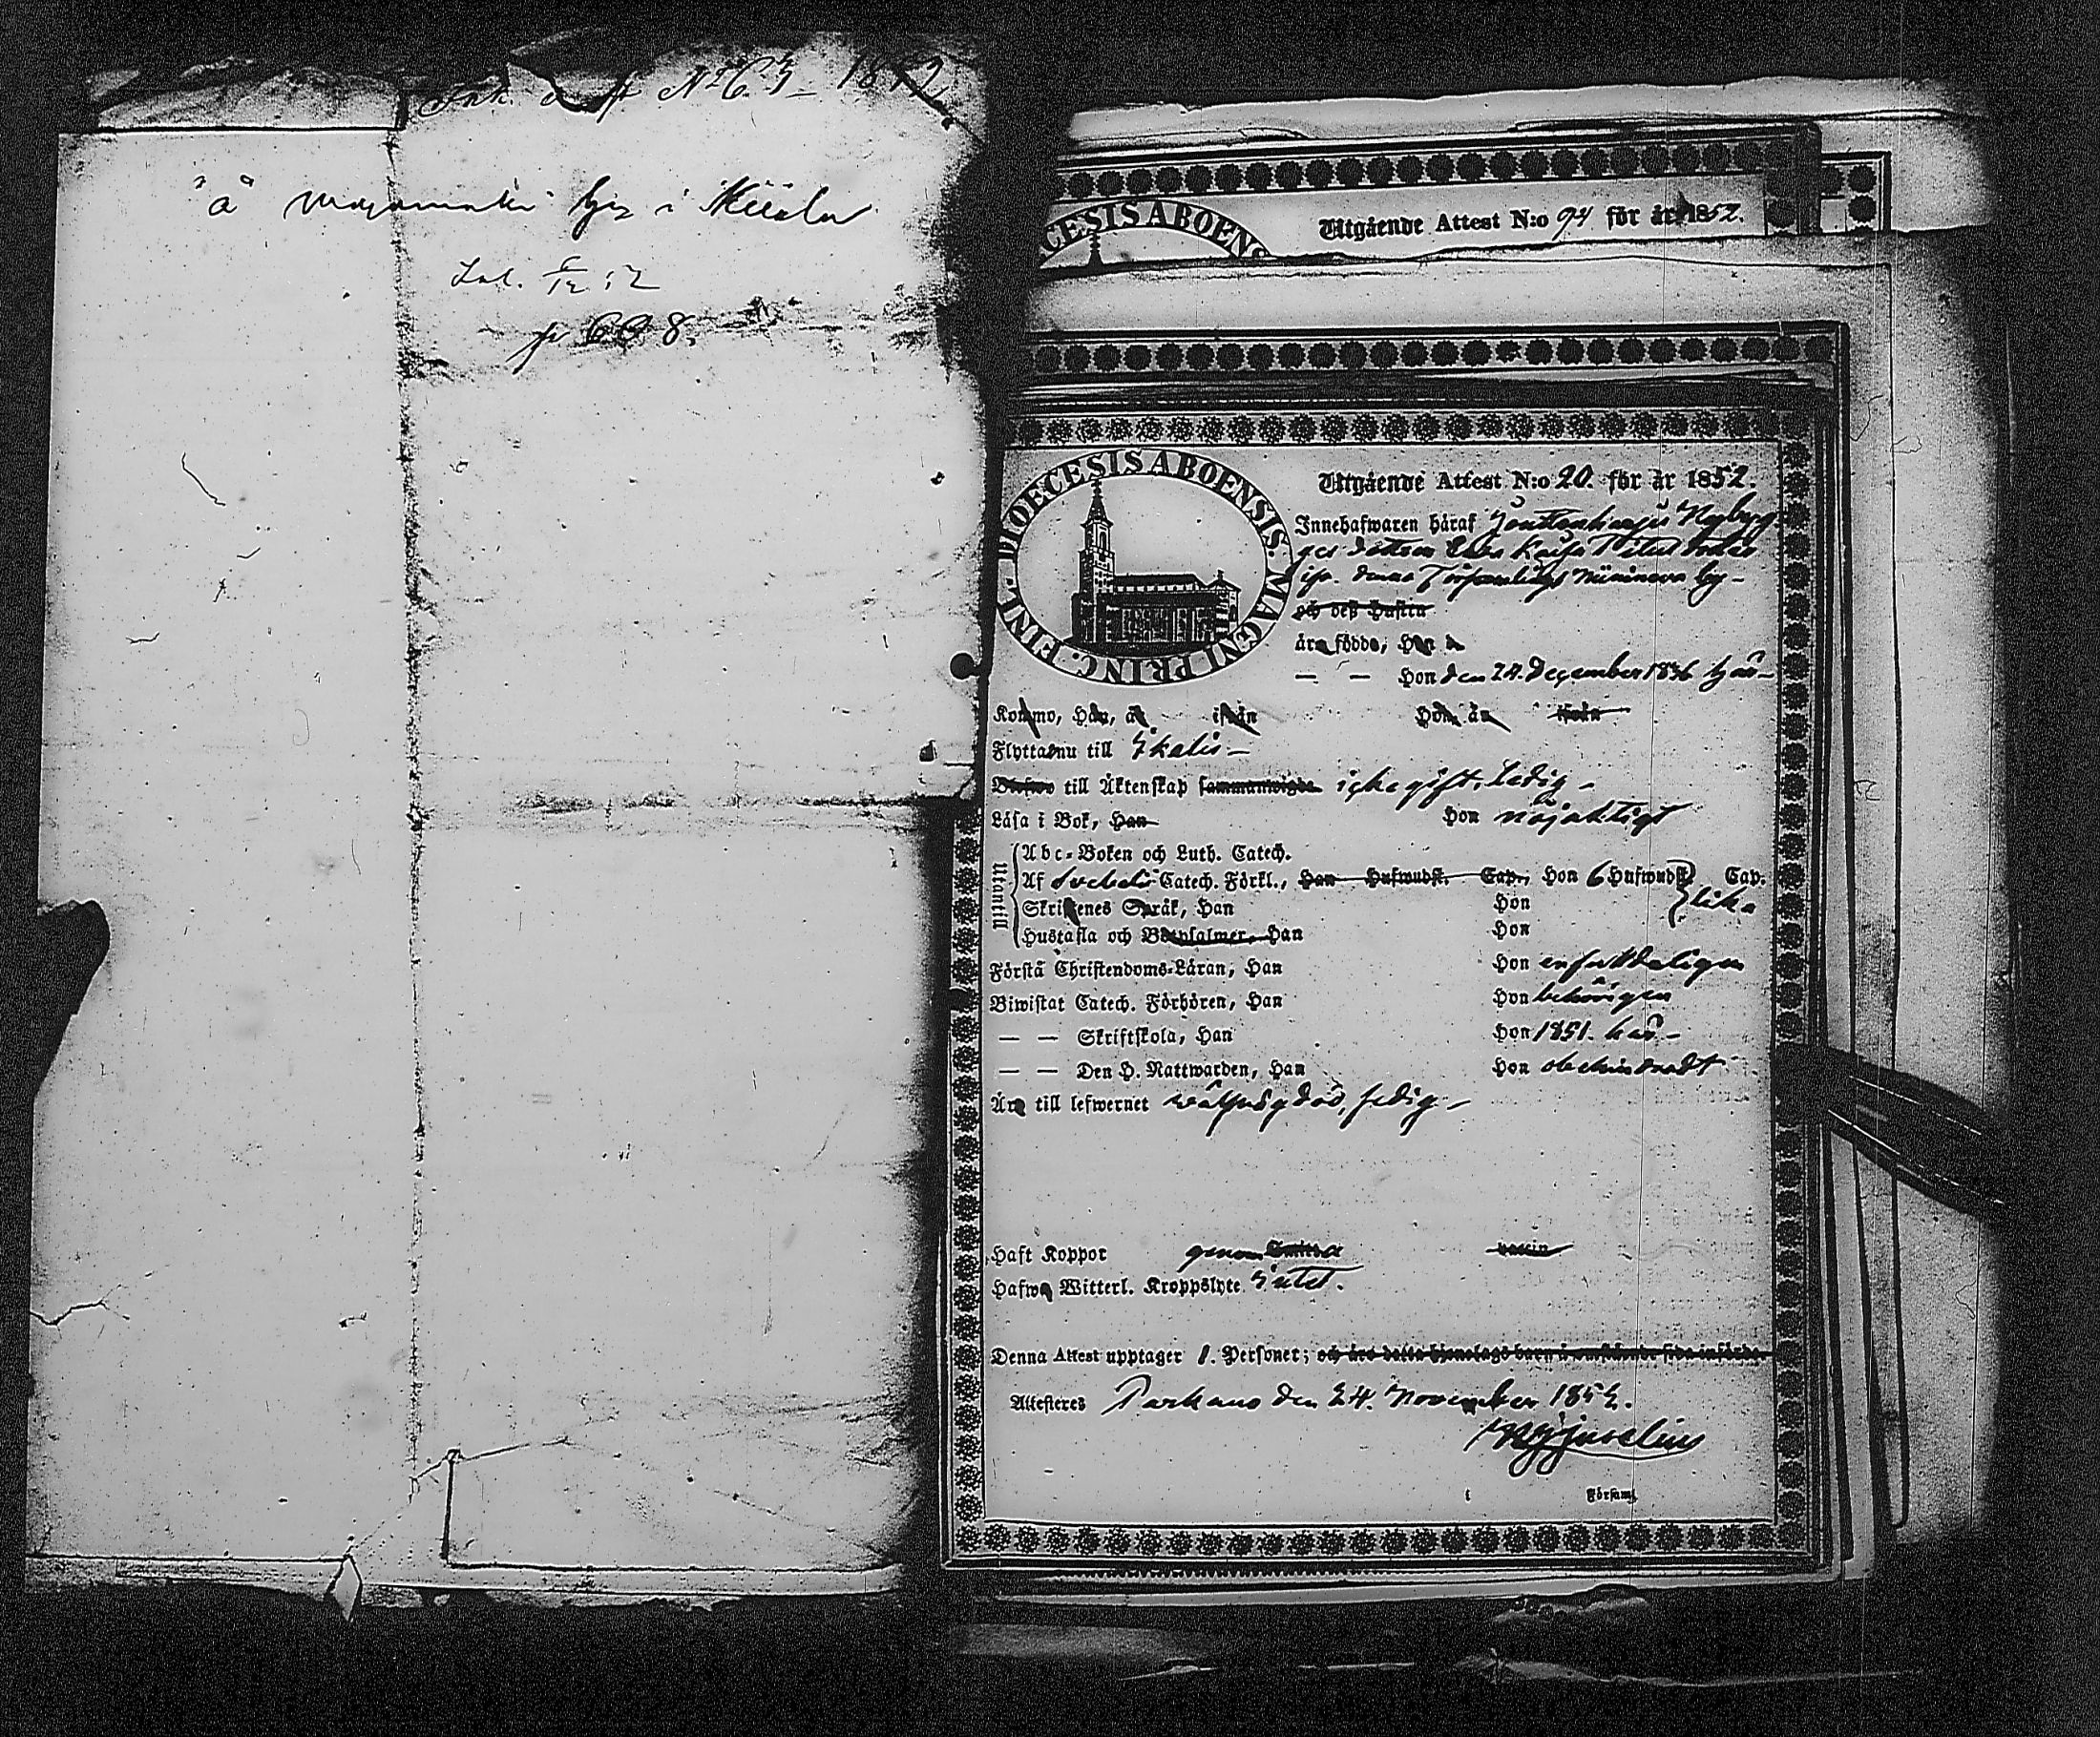 Ink. attest No 63 1852
Å by i
Ink. 5/12 52
p 698.
CESIS ABOENS
Utgående Attest N:o 94 för år 1852.
DIOECESIS ABOENSIS. MAGNI PRINC. FINL.
Utgående Attest N:o 20. för år 1852.
Innehafwaren häraf Nyberg
dottren Eva Kajsa
ifr. denna Församlings by -
och deß hustru
äro födde, Han d.
— — Hon den 24. December 1836 här -
Komne, Han, år ifrån Hon, år ifrån
Flytta nu till Ikalis -
Blefwo till Äktenskap sammanwigde icke gift, ledig -
Läsa i Bok, Han Hon nöjaktigt
Utantill
Abc-Boken och Luth. Catech.
Af Svebelii Catech. Förkl., Han Hufwudst. Cap., Hon 6 Hufwudst. Cap.
Skriftenes Språk, Han Hon lika
Hustafla och Botpsalmer, Han Hon
Förstå Christendoms-Läran, Han Hon enfaldeligen
Biwistat Catech. Förhören, Han Hon behörigen
— — Skriftskola, Han Hon 1851. här -
— — Den H. Nattwarden, Han Hon obehindradt
Äro till lefwernet wälfrägdad, ledig -
Haft Koppor genom Smitta vaccin
Hafwa Witterl. Kroppslyte Intet.
Denna Attest upptager 1. Personer; och äro detta hjonelags barn å omstående sida införde
Attesteres Parkano den 24. November 1852.
i Församl.